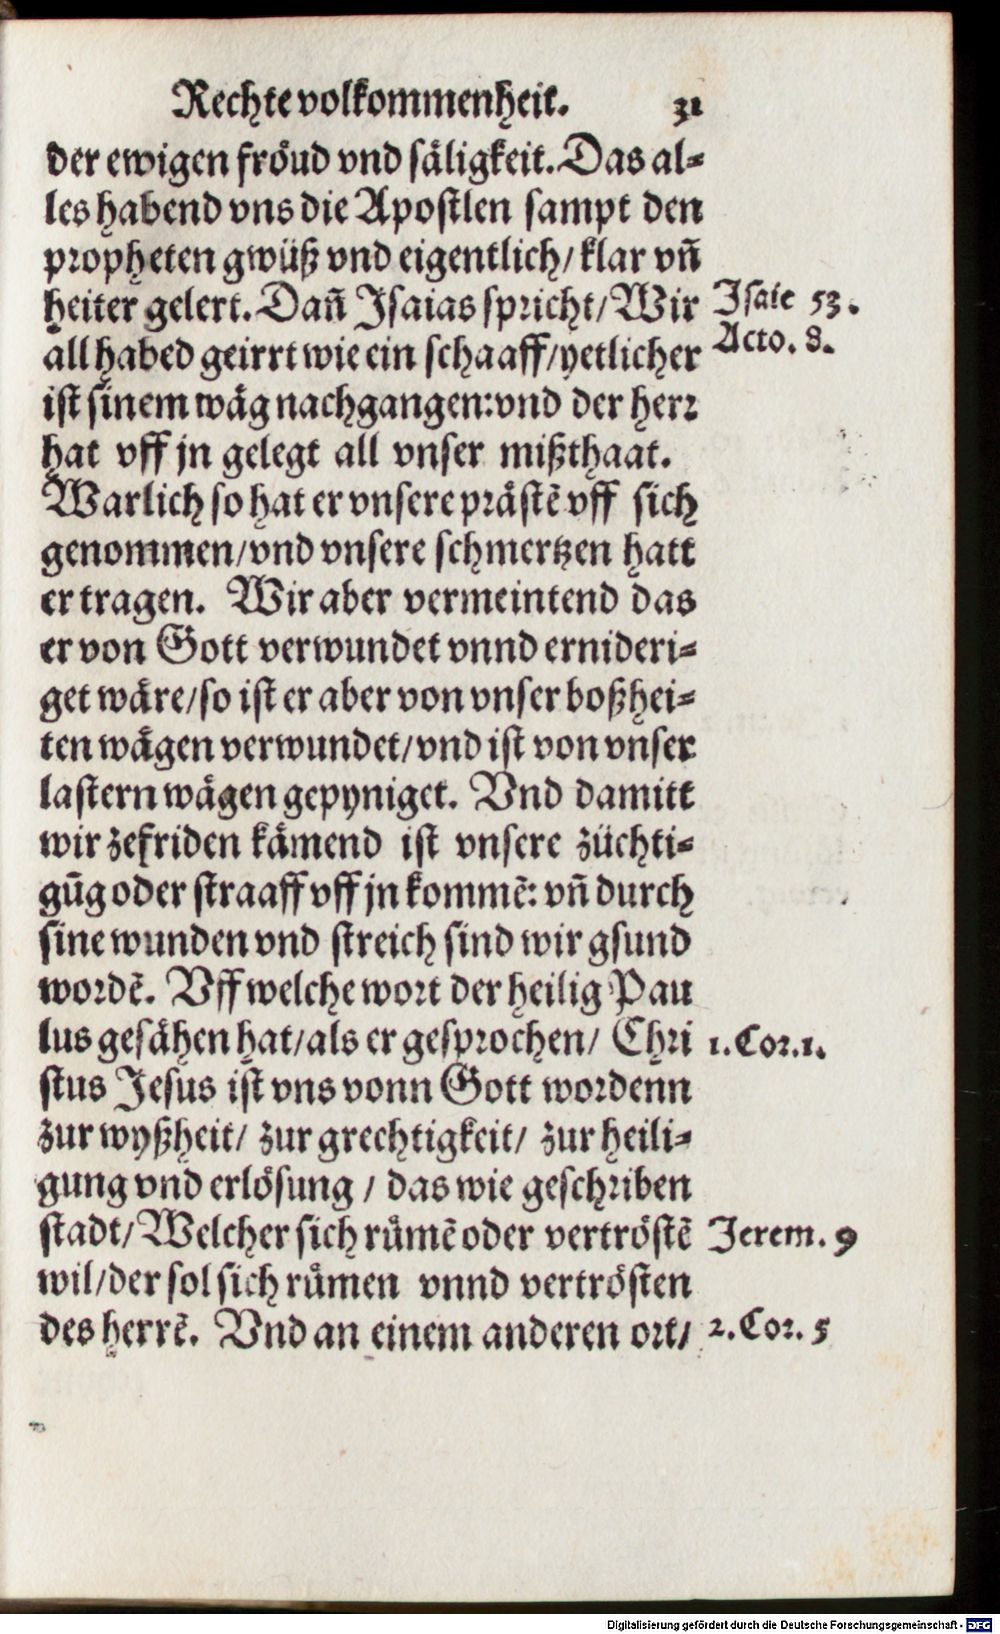 Rechte volkommenheit. 31
der ewigen fröud vnd säligkeit. Das al⸗
les habend vns die Apostlen sampt den
propheten gwüß vnd eigentlich/ klar vn̄
heiter gelert. Dan̄ Isaias spricht/ Wir
Isaie 53.
all habed geirrt wie ein schaaff/ yetlicher
Acto. 8.
ist sinem wäg nachgangen: vnd der herr
hat vff jn gelegt all vnser mißthaat.
Warlich so hat er vnsere prästē vff sich
genommen/ vnd vnsere schmertzen hatt
er tragen. Wir aber vermeintend das
er von Gott verwundet vnnd ernideri⸗
get wäre/ so ist er aber von vnser boßhei⸗
ten wägen verwundet/ vnd ist von vnser
lastern wägen gepyniget. Vnd damitt
wir zefriden kämend ist vnsere züchti⸗
gūg oder straaff vff jn kommē: vn̄ durch
sine wunden vnd streich sind wir gsund
wordē. Vff welche wort der heilig Pau
lus gesähen hat/ als er gesprochen/ Chri
1. Cor. 1.
stus Jesus ist vns vonn Gott wordenn
zur wyßheit/ zur grechtigkeit/ zur heili⸗
gung vnd erlösung / das wie geschriben
stadt/ Welcher sich růmē oder vertröstē
Jerem. 9
wil/ der sol sich růmen vnnd vertrösten
des herrē. Vnd an einem anderen ort/
2. Cor. 5
Digitalisierung gefördert durch die Deutsche Forschungsgemeinschaft - DFG